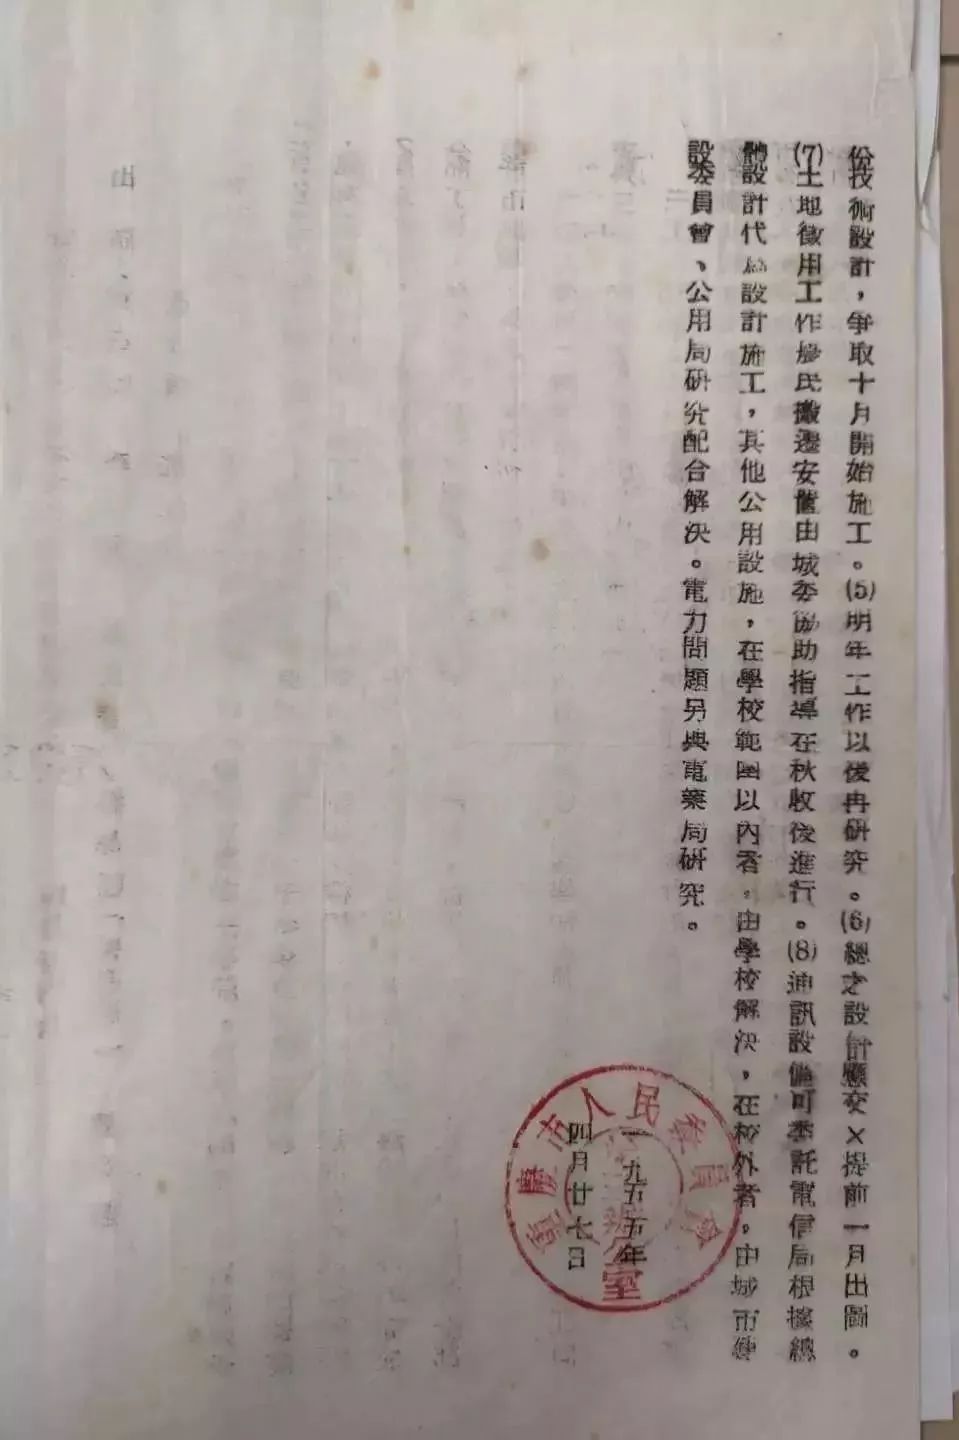 份技術設計，爭取十月開始施工。(5)明年工作以後再研究。(6)總之設計應交×提前一月出圖。
(7)土地徵用工作農民搬遷安置由城委協助指導在秋收後進行。(8)通訊設備可委託電信局根據總
體設計代為設計施工，其他公用設施，在學校範圍以內者，由學校解決，在校外者，由城市建
設委員會、公用局研究配合解決。電力問題另與電業局研究。
一九五五年
四月廿七日
重慶市人民委員會
辦公室